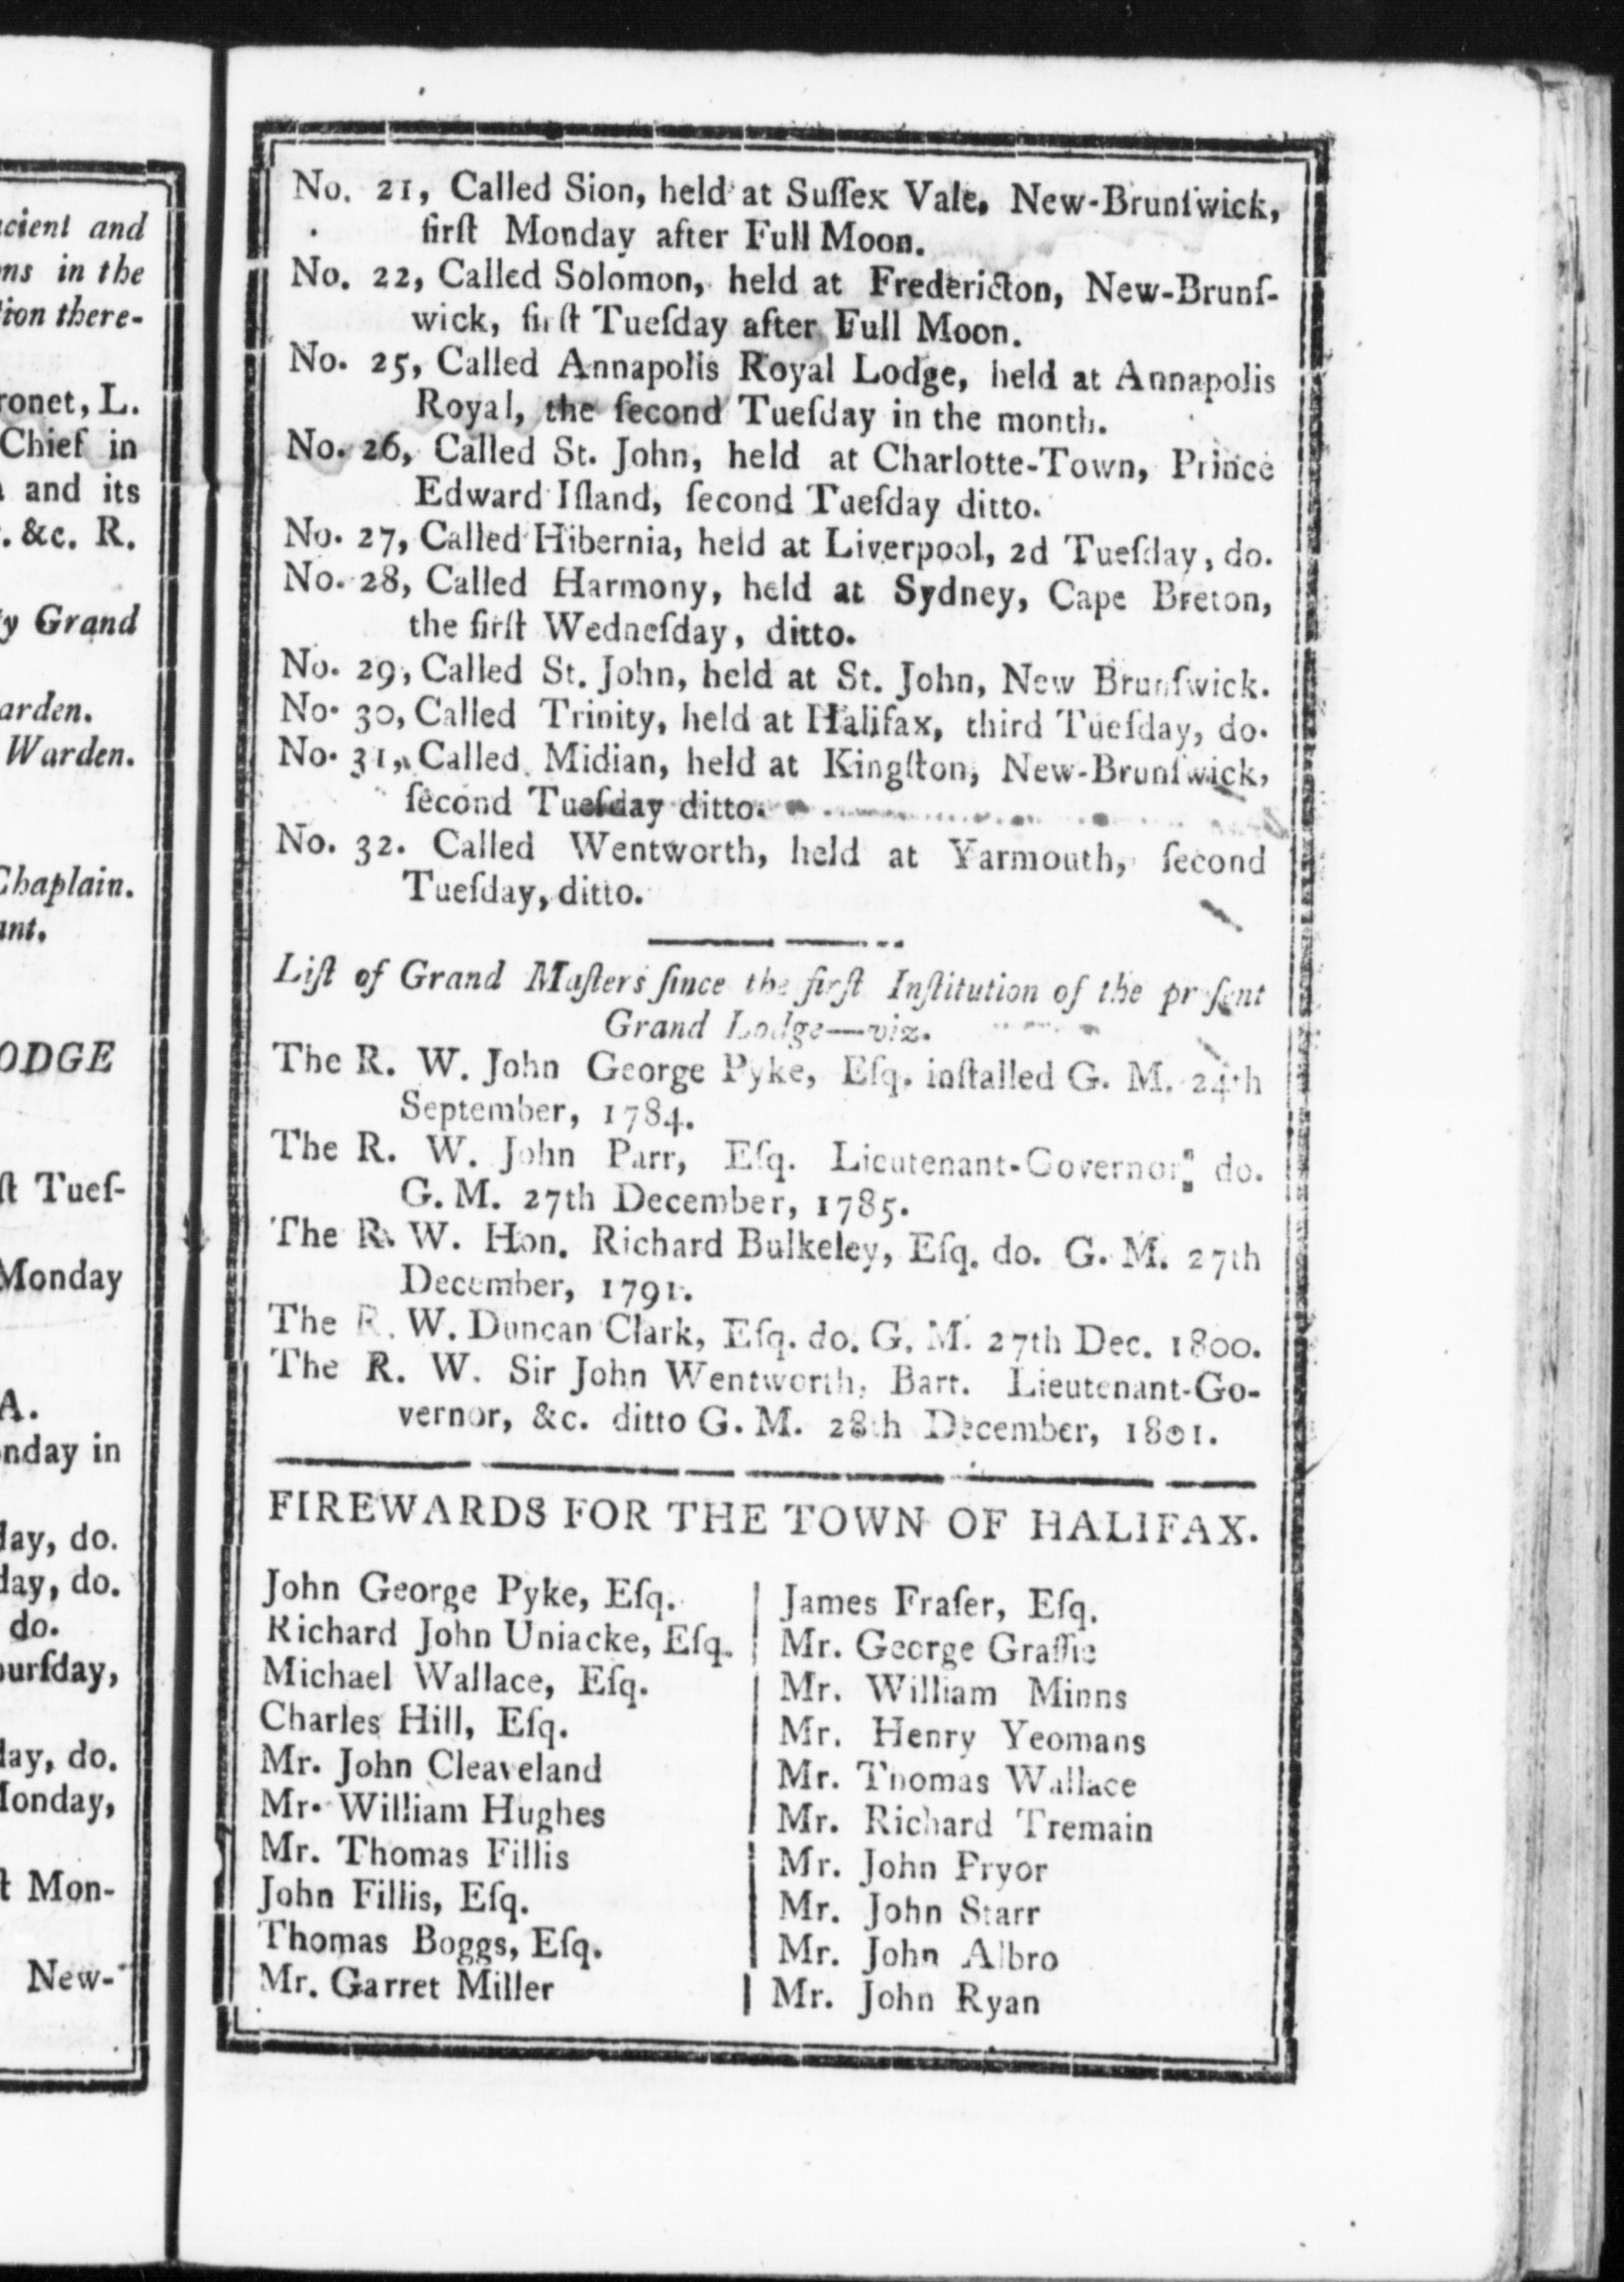 cient and
ns in the
tion there-
ronet, L.
Chief in
and its
. &c. R.
y Grand
arden.
Warden.
Chaplain.
ant.
ODGE
ſt Tueſ-
Monday
A.
nday in
day, do.
day, do.
do.
ourſday,
day, do.
Monday,
t Mon-
New-
No. 21, Called Sion, held at Suſſex Vale, New-Brunſwick,
firſt Monday after Full Moon.
No. 22, Called Solomon, held at Fredericton, New-Brunſ-
wick, firſt Tueſday after Full Moon.
No. 25, Called Annapolis Royal Lodge, held at Annapolis
Royal, the ſecond Tueſday in the month.
No. 26, Called St. John, held at Charlotte-Town, Prince
Edward Iſland, ſecond Tueſday ditto.
No. 27, Called Hibernia, held at Liverpool, 2d Tueſday, do.
No. 28, Called Harmony, held at Sydney, Cape Breton,
the firſt Wedneſday, ditto.
No. 29, Called St. John, held at St. John, New Brunſwick.
No. 30, Called Trinity, held at Halifax, third Tueſday, do.
No. 31, Called Midian, held at Kingſton, New-Brunſwick,
ſecond Tueſday ditto.
No. 32. Called Wentworth, held at Yarmouth, ſecond
Tueſday, ditto.
Liſt of Grand Maſters ſince the firſt Inſtitution of the preſent
Grand Lodge—viz.
The R. W. John George Pyke, Eſq. inſtalled G. M. 24th
September, 1784.
The R. W. John Parr, Eſq. Lieutenant-Governor, do.
G. M. 27th December, 1785.
The R. W. Hon. Richard Bulkeley, Eſq. do. G. M. 27th
December, 1791.
The R. W. Duncan Clark, Eſq. do. G. M. 27th Dec. 1800.
The R. W. Sir John Wentworth, Bart. Lieutenant-Go-
vernor, &c. ditto G. M. 28th December, 1801.
FIREWARDS FOR THE TOWN OF HALIFAX.
John George Pyke, Eſq.
Richard John Uniacke, Eſq.
Michael Wallace, Eſq.
Charles Hill, Eſq.
Mr. John Cleaveland
Mr. William Hughes
Mr. Thomas Fillis
John Fillis, Eſq.
Thomas Boggs, Eſq.
Mr. Garret Miller
James Fraſer, Eſq.
Mr. George Graſſie
Mr. William Minns
Mr. Henry Yeomans
Mr. Thomas Wallace
Mr. Richard Tremain
Mr. John Pryor
Mr. John Starr
Mr. John Albro
Mr. John Ryan